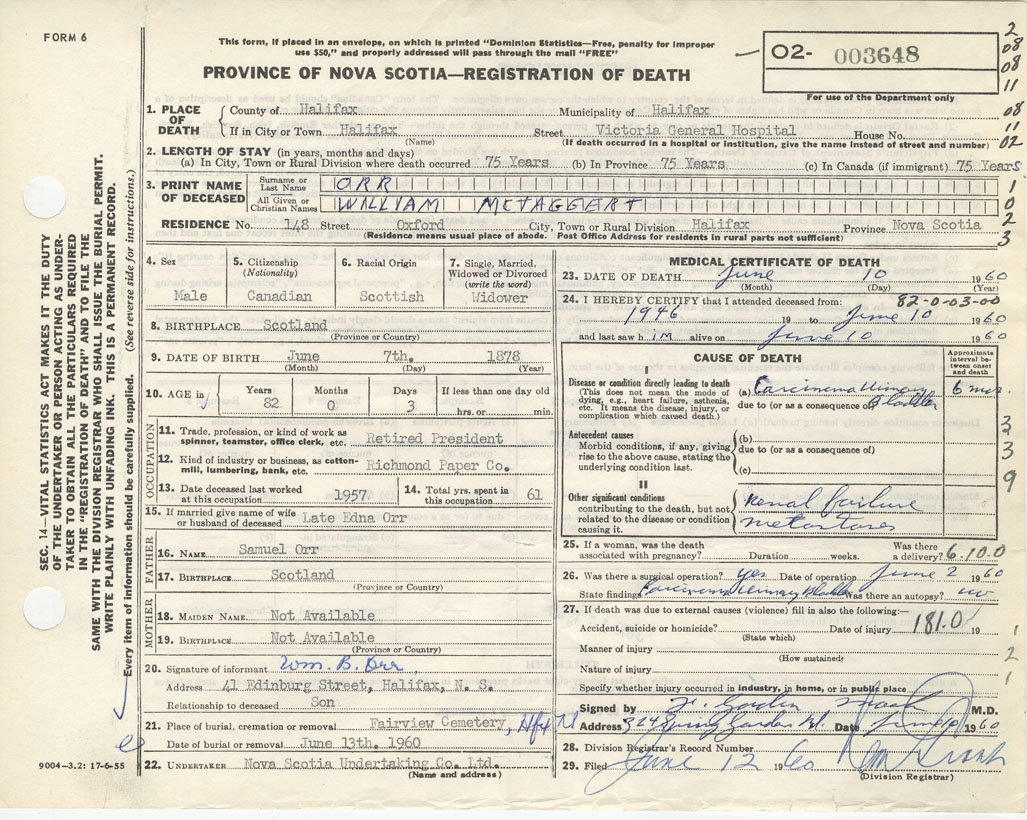 FORM 6
This form, if placed in an envelope, on which is printed "Dominion Statistics—Free, penalty for improper
use $50," and properly addressed will pass through the mail "FREE"
PROVINCE OF NOVA SCOTIA—REGISTRATION OF DEATH
O2- 003648
For use of the Department only
2
08
08
11
08
11
02
1. PLACE OF DEATH
County of Halifax Municipality of Halifax
If in City or Town Halifax Street Victoria General Hospital House No.
(Name) (If death occurred in a hospital or Institution, give the name instead of street and number)
2. LENGTH OF STAY (in years, months and days)
(a) In City, Town or Rural Division where death occurred 75 Years (b) In Province 75 Years (c) In Canada (if immigrant) 75 Years
3. PRINT NAME OF DECEASED
Surname or Last Name ORR
All Given or Christian Names WILLIAM MCTAGGERT
1
0
2
3
RESIDENCE No. 148 Street Oxford City, Town or Rural Division Halifax Province Nova Scotia
(Residence means usual place of abode. Post Office Address for residents in rural parts not sufficient)
4. Sex
Male
5. Citizenship
(Nationality)
Canadian
6. Racial Origin
Scottish
7. Single, Married,
Widowed or Divorced
(write the word)
Widower
8. BIRTHPLACE Scotland
(Province or Country)
9. DATE OF BIRTH June 7th. 1878
(Month) (Day) (Year)
10. AGE in
Years Months Days If less than one day old
82 0 3 hrs. or min.
OCCUPATION
11. Trade, profession, or kind of work as
spinner, teamster, office clerk, etc. Retired President
12. Kind of industry or business, as cotton-
mill, lumbering, bank, etc. Richmond Paper Co.
13. Date deceased last worked
at this occupation 1957
14. Total yrs. spent in
this occupation 61
15. If married give name of wife
or husband of deceased Late Edna Orr
FATHER
16. NAME Samuel Orr
17. BIRTHPLACE Scotland
(Province or Country)
MOTHER
18. MAIDEN NAME Not Available
19. BIRTHPLACE Not Available
(Province or Country)
20. Signature of informant Wm. B. Orr
Address 41 Edinburg Street, Halifax, N. S.
Relationship to deceased Son
21. Place of burial, cremation or removal Fairview Cemetery,
Date of burial or removal June 13th. 1960
22. UNDERTAKER Nova Scotia Undertaking Co. Ltd.
(Name and address)
MEDICAL CERTIFICATE OF DEATH
23. DATE OF DEATH June 10 1960
(Month) (Day) (Year)
24. I HEREBY CERTIFY that I attended deceased from: 82-0-03-00
1946 19 to June 10 1960
and last saw him alive on June 10 1960
CAUSE OF DEATH
Approximate interval between onset and death
I
Disease or condition directly leading to death
(This does not mean the mode of
dying, e.g., heart failure, asthenia,
etc. It means the disease, injury, or
complication which caused death.)
(a) Carcinoma Urinary Bladder 6 mos
due to (or as a consequence of)
Antecedent causes
Morbid conditions, if any, giving
rise to the above cause, stating the
underlying condition last.
(b)
due to (or as a consequence of)
(c)
3
3
9
II
Other significant conditions
contributing to the death, but not
related to the disease or condition
causing it.
Renal failure
25. If a woman, was the death
associated with pregnancy? Duration weeks. Was there
a delivery? 6.10.0
26. Was there a surgical operation? yes Date of operation June 2 1960
State findings Carcinoma Urinary Bladder Was there an autopsy? no
27. If death was due to external causes (violence) fill in also the following:—
Accident, suicide or homicide? Date of injury 181.0 19
(State which)
Manner of injury
(How sustained)
Nature of injury
1
2
1
Specify whether injury occurred in industry, in home, or in public place
Signed by M.D.
Address 324 Spring Garden Rd. Date June 10 1960
28. Division Registrar's Record Number
29. Filed June 12 1960
(Division Registrar)
SEC. 14—VITAL STATISTICS ACT MAKES IT THE DUTY
OF THE UNDERTAKER OR PERSON ACTING AS UNDER-
TAKER TO OBTAIN ALL THE PARTICULARS REQUIRED
IN THE "REGISTRATION OF DEATH" AND TO FILE THE
SAME WITH THE DIVISION REGISTRAR WHO SHALL ISSUE THE BURIAL PERMIT.
WRITE PLAINLY WITH UNFADING INK. THIS IS A PERMANENT RECORD.
Every item of information should be carefully supplied. (See reverse side for instructions.)
9004—3.2: 17-6-55